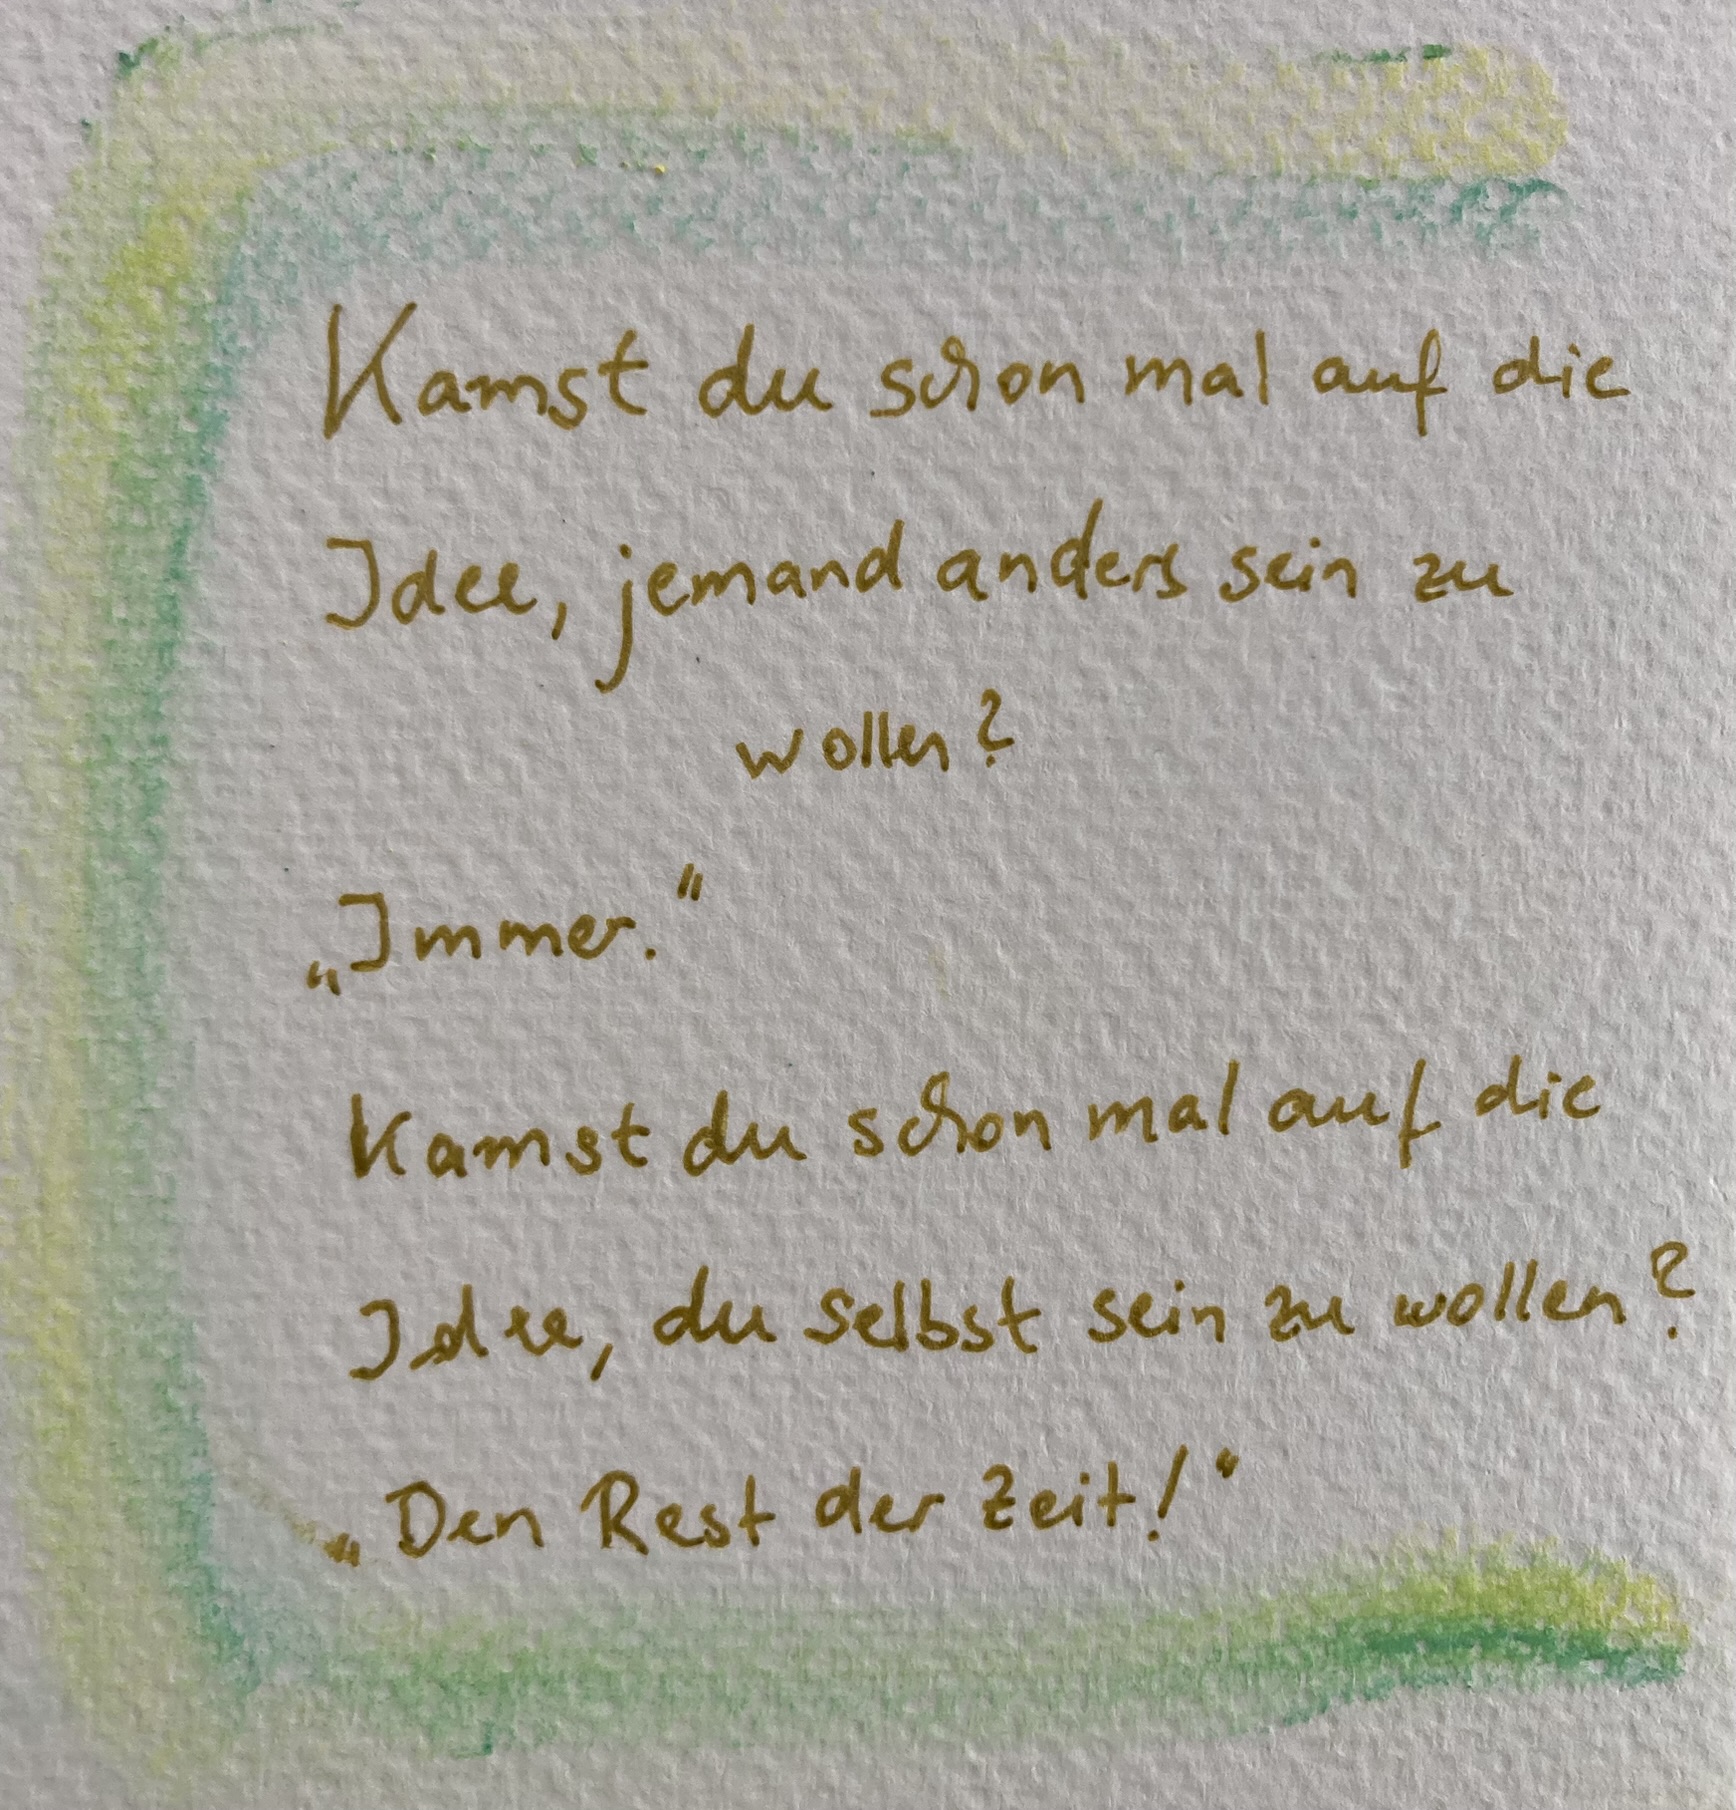 Kamst du schon mal auf die
Idee, jemand anders sein zu
wollen?
„Immer."
Kamst du schon mal auf die
Idee, du selbst sein zu wollen?
„Den Rest der Zeit!"